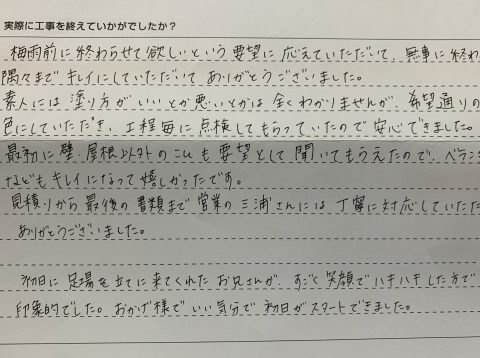 実際に工事を終えていかがでしたか？
梅雨前に終わらせて欲しいという要望に応えていただいて、無事に終わ
隅々までキレイにしていただいてありがとうございました。
素人には塗り方がいいとか悪いとかは全くわかりませんが、希望通りの
色にしていただき、工程毎に点検してもらっていたので安心できました。
最初に壁・屋根以外のことも要望として聞いてもらえたので、ベラン
などもキレイになって嬉しかったです。
見積りから最後の書類まで営業の三浦さんには丁寧に対応していただ
ありがとうございました。
初日に足場を立てに来てくれたお兄さんが、すごく笑顔でハキハキした方で
印象的でした。おかげ様でいい気分で初日がスタートできました。